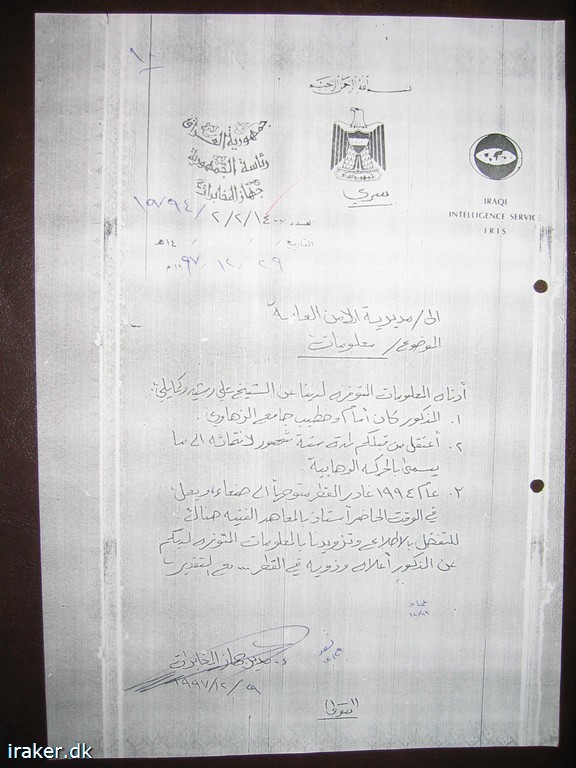 بسم الله الرحمن الرحيم
جمهورية العراق
رئاسة الجمهورية
جهاز المخابرات
سري
IRAQI
INTELLIGENCE SERVICE
IRIS
العدد
التاريخ / / ١٤هـ
٢٩ / ١٢ / ٩٧
الى / مديرية الامن العامة
الموضوع / معلومات
أدناه المعلومات المتوفره لدينا عن الشيخ علي
١. المذكور كان أمام وخطيب جامع الزهاوي
٢. أعتقل من قبلكم لمدة ستة شهور لانتمائه الى ما
يسمى بالحركة الوهابية
٣. عام ١٩٩٤ غادر القطر متوجهاً الى صنعاء ويعمل
في الوقت الحاضر أستاذ بالمعاهد الفنيه هناك
للتفضل بالاطلاع وتزويدنا بالمعلومات المتوفره لديكم
عن المذكور أعلاه وذويه في القطر ... مع التقدير
مدير جهاز المخابرات
iraker.dk